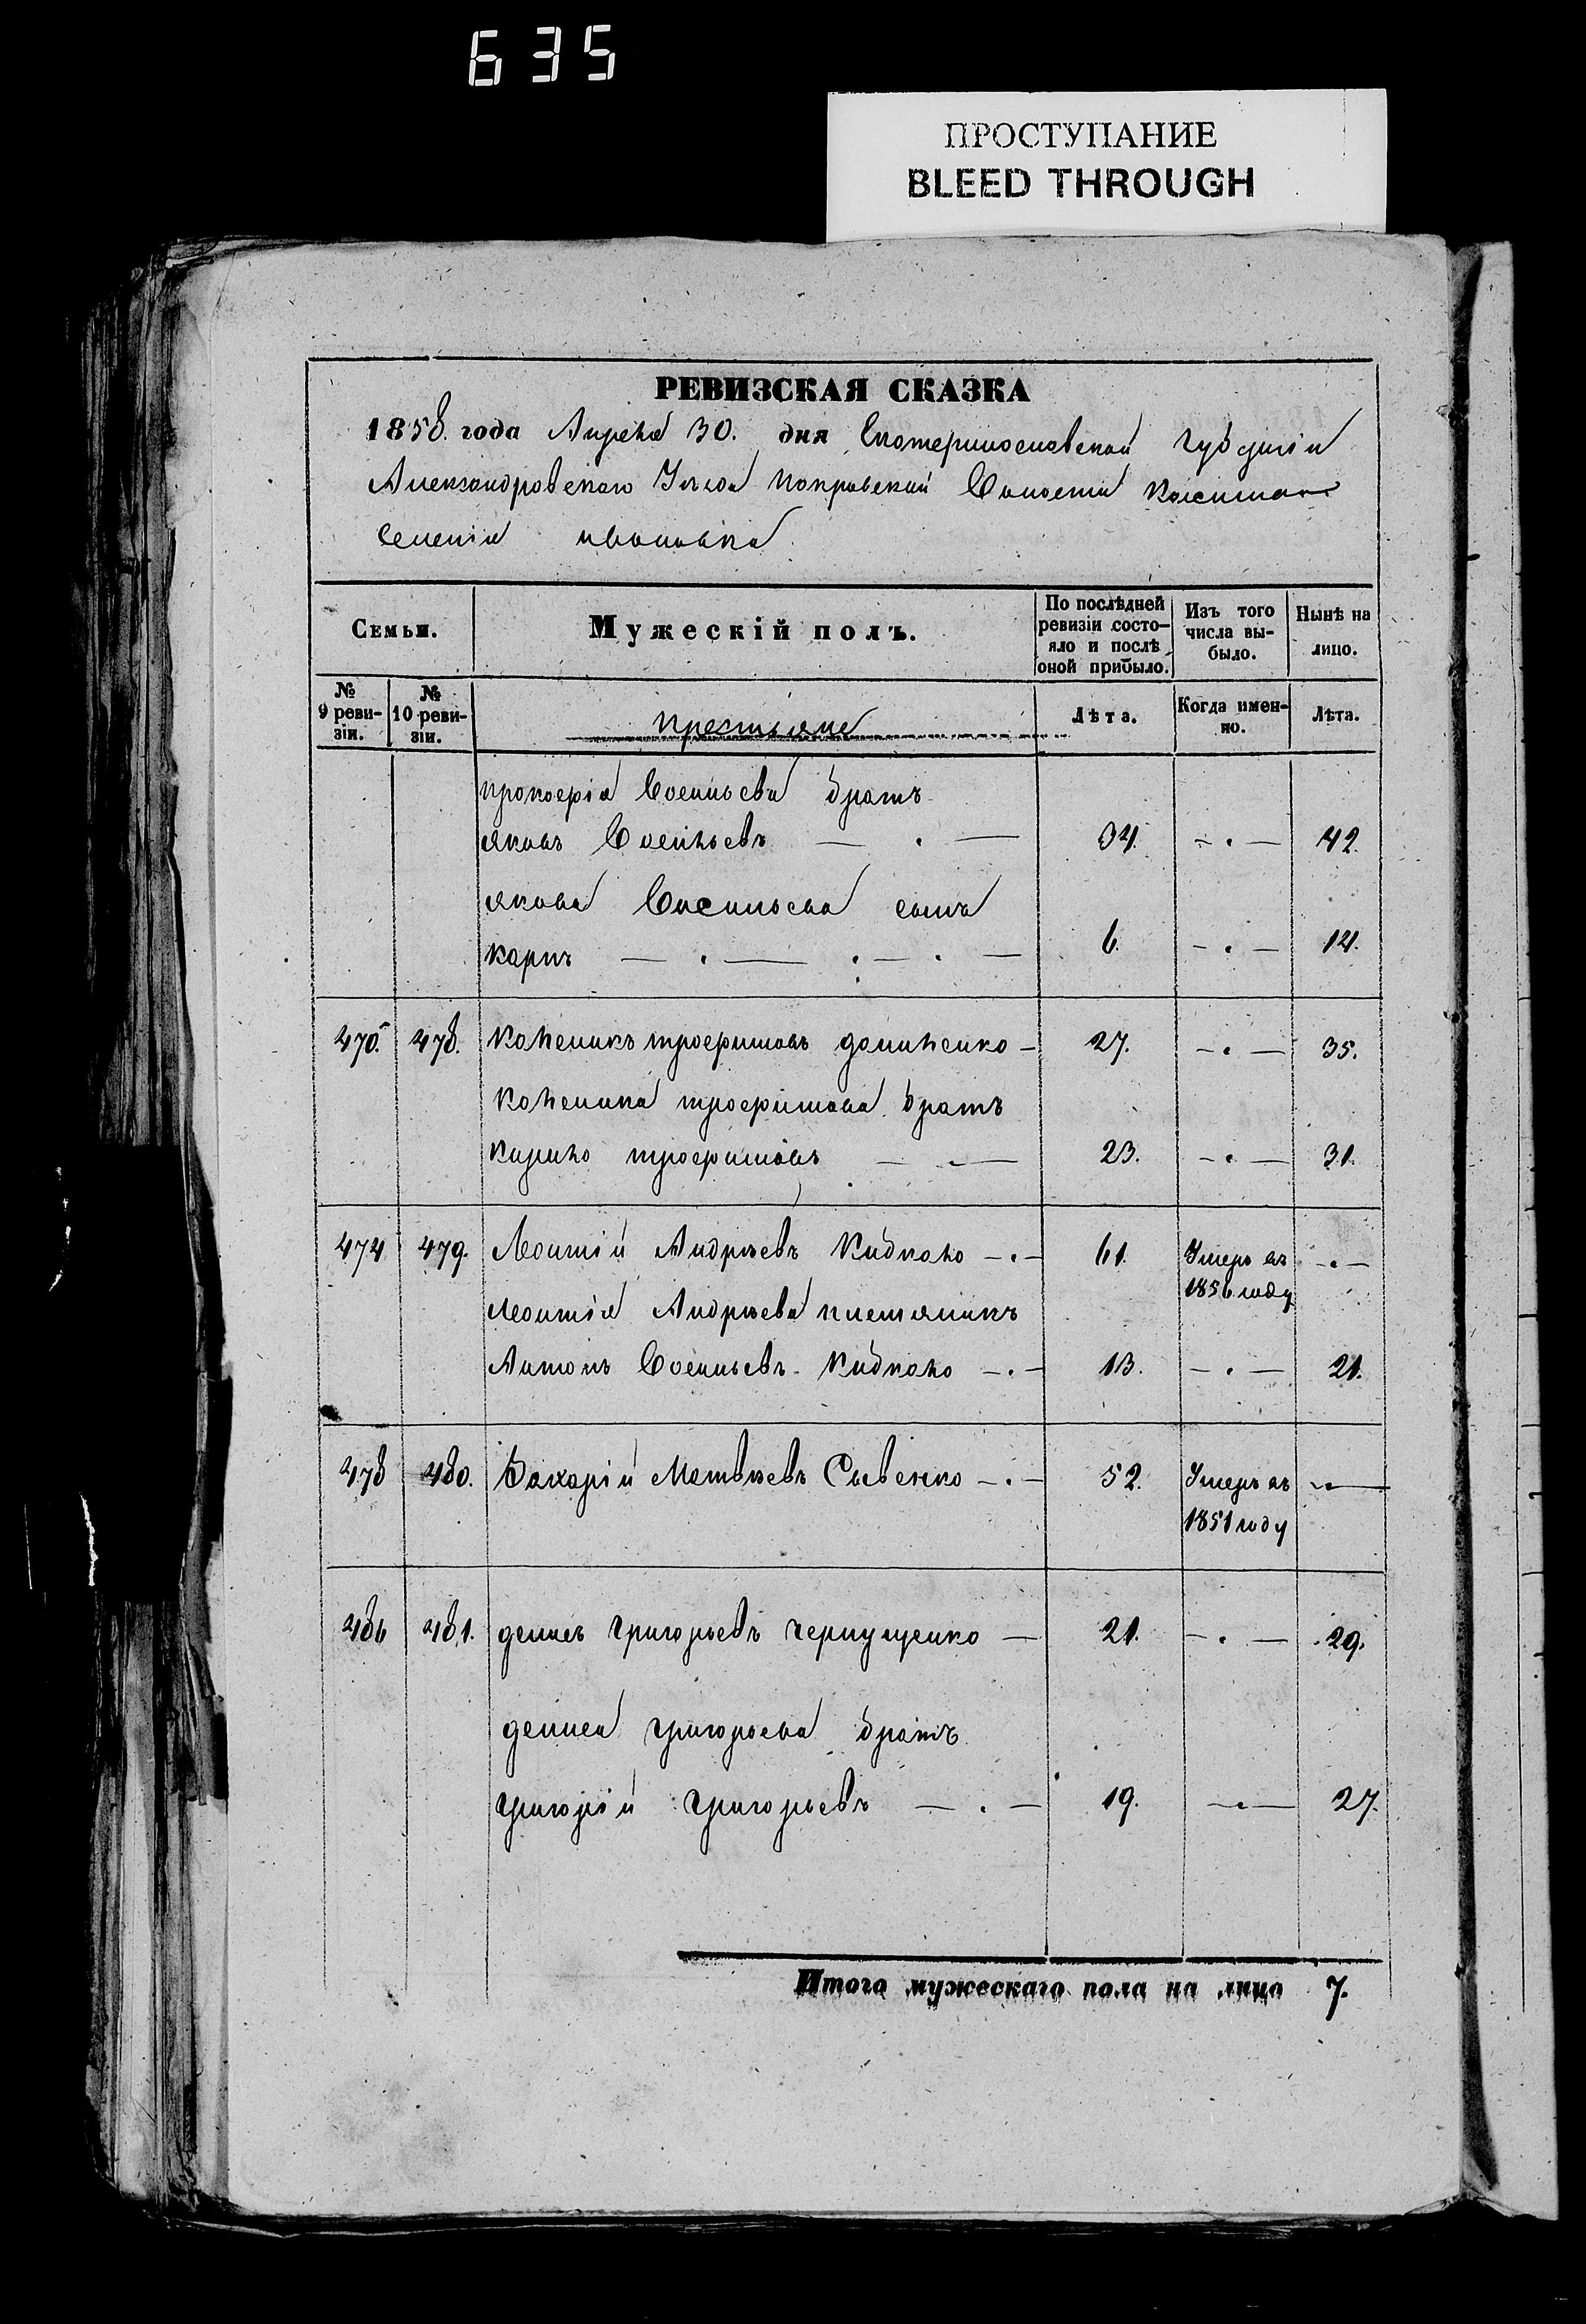 635
ПРОСТУПАНИЕ
BLEED THROUGH
РЕВИЗСКАЯ СКАЗКА
1858. года Апреля 30. дня Екатеринославской губерніи
Александровскаго Уезда Покровской Волости
Селенія ивановка
Семьи.
Мужескій полъ.
По послѣдней ревизіи состояло и послѣ оной прибыло.
Изъ того числа выбыло.
Нынѣ на лицо.
№ 9 ревизіи.
№ 10 ревизіи.
крестьяне
Лѣта.
Когда именно.
Лѣта.
прокофія Васильева братъ
яковъ Васильевъ — . — 34. - . — 42.
якова Васильева сынъ
карпъ — . — . — . — 6. - . — 14.
470. 478. трофимовъ — 27. - . — 35.
трофимова братъ
кирило трофимовъ — . — 23. - . — 31.
474 479. Леонтій Андреевъ Кидкало - . - 61. Умеръ въ 1856 году - . -
леонтія Андреева племяникъ
Антонъ Васильевъ Кидкало - . - 13. - . — 21.
478 480. Захарій Матвѣевъ Савенко - . - 52. Умеръ въ 1851 году - . —
486 481. денисъ григорьевъ чернущенко — 21. - . — 29.
дениса григорьева братъ
григорій григорьевъ — . — 19. - . — 27.
Итого мужескаго пола на лицо 7.